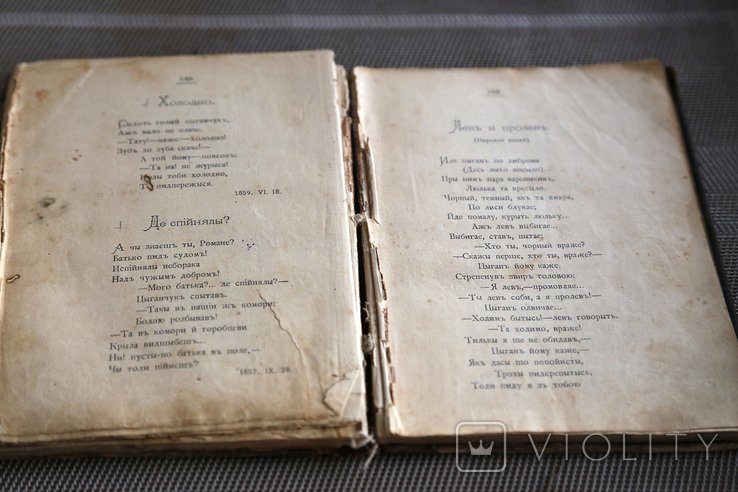 Холодно.
Сидить голый цыганчукъ,
Ажъ мало не плаче.
—Тату!—каже—холодно!
Зубъ до зуба скаче!—
А той йому—поясокъ:
—Та на! не журыся!
Колы тоби холодно,
То пидпережыся.
1859. VI. 18.
Де спійнялы?
А чы знаешъ ты, Романе?
Батько пидъ судомъ!
Испійнялы неборака
Надъ чужымъ добромъ!
—Мого батька?... де спійнялы?—
Цыганчукъ спытавъ.
—Такы въ нашій жъ комори:
Бодню розбывавъ!
—Та въ комори й горобцеви
Крыла видшыбешъ...
Ни! пусты-но батька въ поле,—
Чы тоди пійнешъ?
1857. IX. 29.
Левъ и пролевъ.
(Народня казка)
Иде цыганъ по диброви.
(Десь лыхо носыло)...
При нимъ пара вареныкивъ,
Люлька та кресыло.
Чорный, темный, якъ та хмара,
По лиси блукае;
Йде помалу, курыть люльку...
Ажъ левъ выбигае...
Выбигае, ставъ, пытае;
—Хто ты, чорный враже?
—Скажы перше, хто ты, враже?—
Цыганъ йому каже.
Стрепенувъ звиръ головою;
—Я левъ,—промовляе...
—Ты левъ соби, а я пролевъ!—
Цыганъ одвичае...
—Ходимъ бытысь!—левъ говорыть.
—Та ходимо, враже!
Тилькы я ше не обидавъ,—
Цыганъ йому каже,—
Якъ дасы шо попойисты,
Трохы пидкрепытысь,
Тоди пиду я зъ тобою
VIOLITY